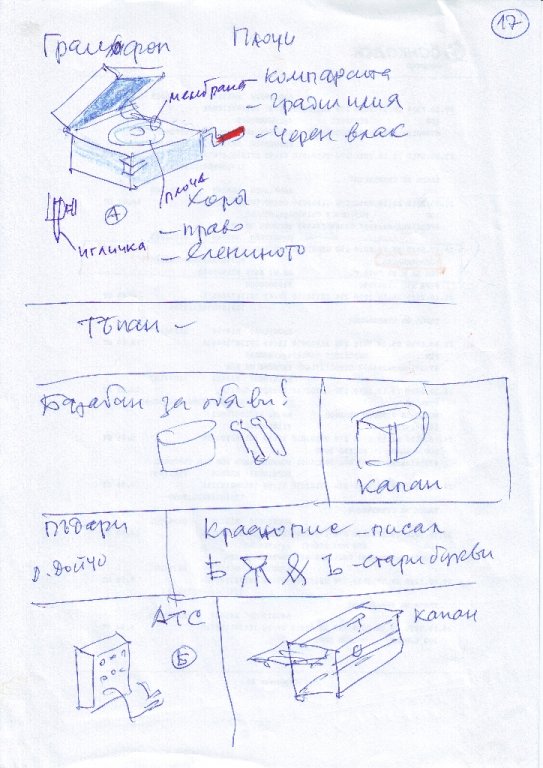 17
Грамофон Плочи
мембрана
- Компарсита
- Гради Илия
- Черен влак
плоча
Хора
- право
- Еленино̀то
игличка
А
Тъпан -
Барабан за обяви!
капан
Пъдари
д. Дойчо
Краснопис - писал
Ѣ Ж Ѫ Ъ - стари букви
АТС
Б
капан